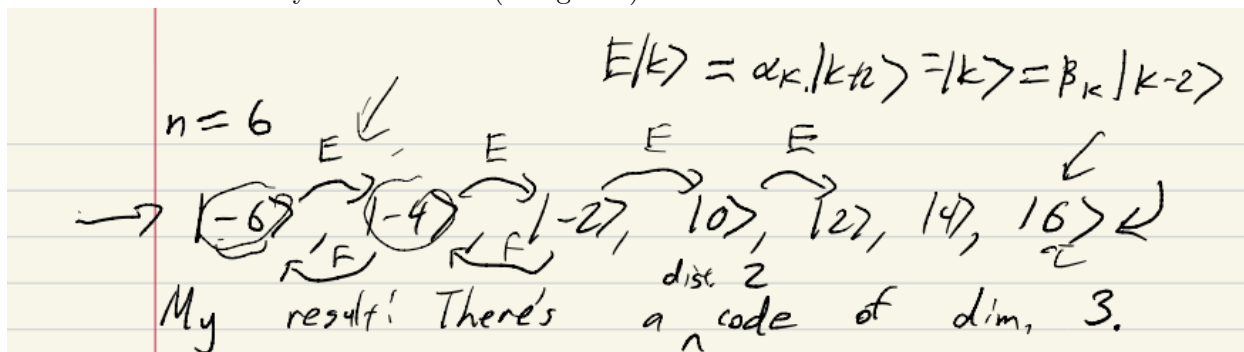 E|k⟩ = α_k |k+2⟩ =|k⟩ = β_k |k-2⟩
n = 6
E E E E
|-6⟩, |-4⟩, |-2⟩, |0⟩, |2⟩, |4⟩, |6⟩
F F
dist 2
My result! There's a ^ code of dim, 3.